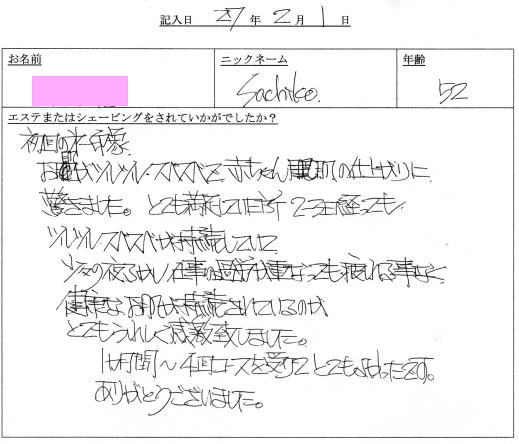 記入日 27年2月1日
お名前 ニックネーム 年齢
Sachiko. 52
エステまたはシェービングをされていかがでしたか？
初回の本印象
お肌がツルツル・スベスベで赤ちゃん肌の仕上がりに
驚きました。とても満足していた所 2〜3日経っても
ツルツルスベスベが持続していて
多少の夜ふかし 仕事の過労が重なっても疲れる事なく
健康なお肌が持続されているのが
とてもうれしく感激致しました。
1ヶ月間〜4回コースを受けてとてもよかったです。
ありがとうございました。